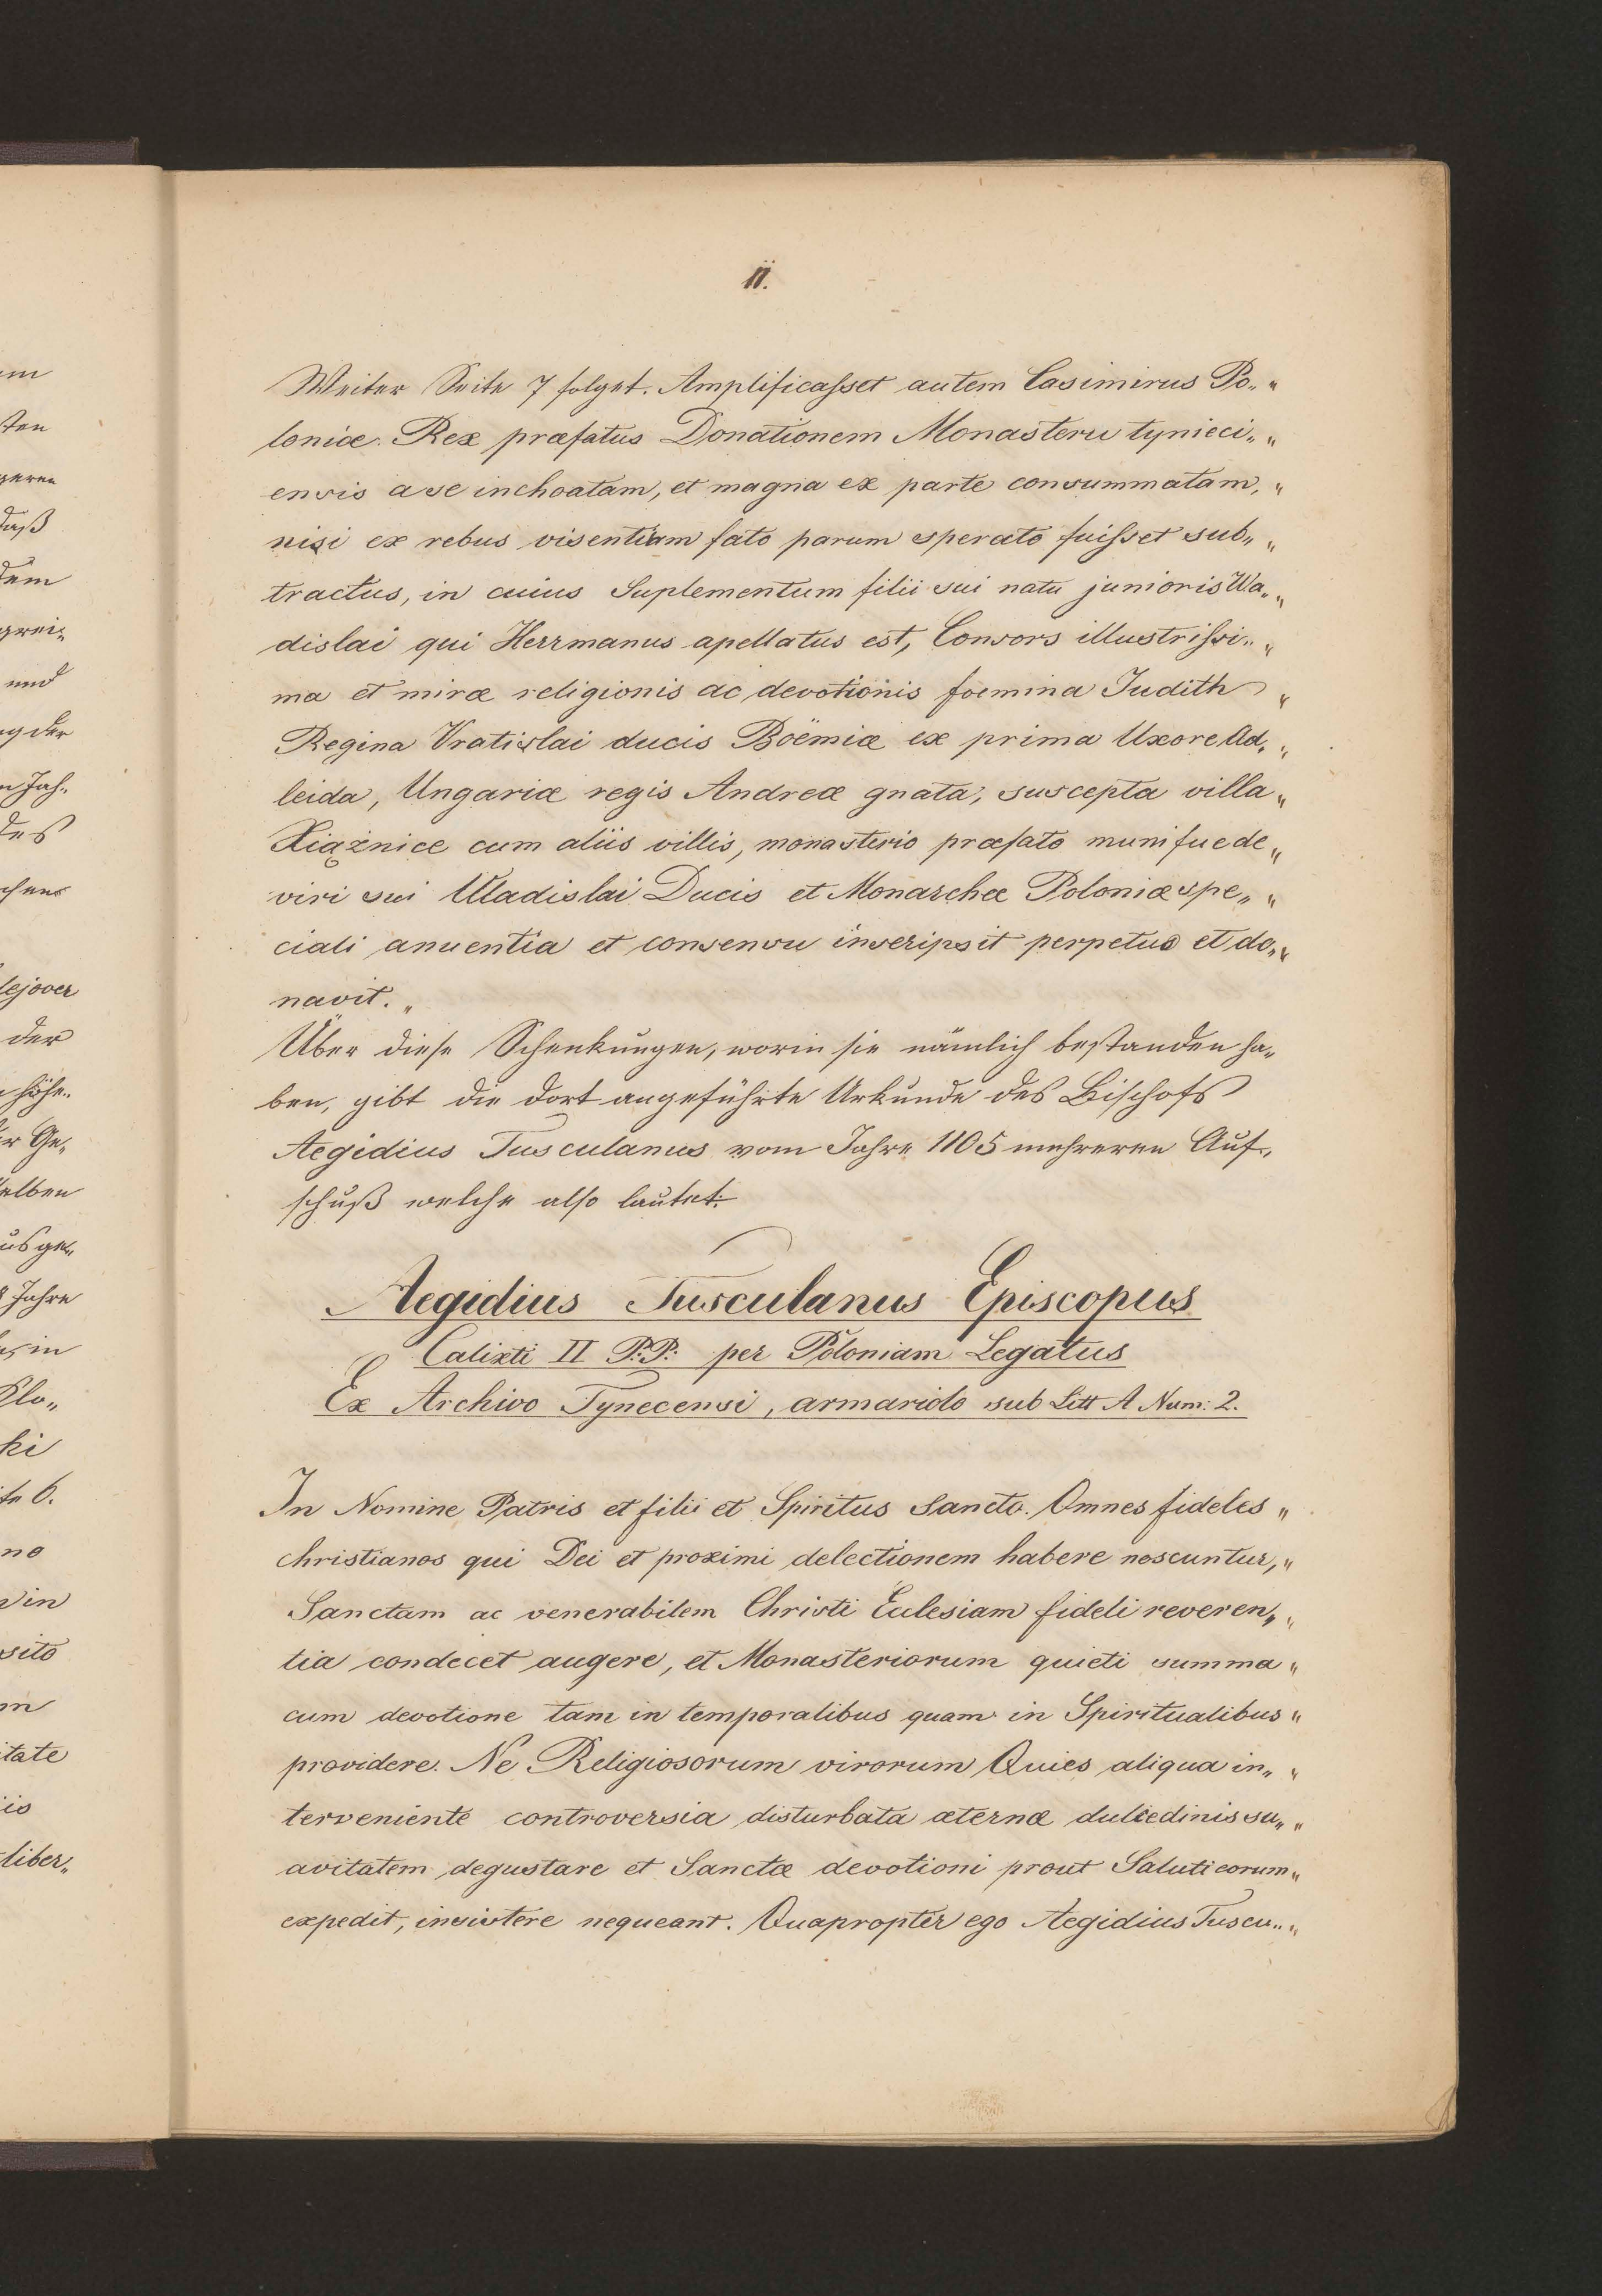 II.
Weiter Seite 7 folget. Amplificaſset autem Casimirus Po„ "
loniæ. Rex præfatus Donationem Monasterii tynieci„ "
ensis a se inchoatam, et magna ex parte consummatam, "
nisi ex rebus visentiam fato parum sperato fuiſset sub„ "
tractus, in cuius Suplementum filii sui natu junioris Wa„ "
dislai qui Herrmanus apellatus est, Consors illustriſsi„ "
ma et miræ religionis ac devotionis foemina Judith "
Regina Vratislai ducis Böemiæ ex prima Uxore Ad„ "
leida, Ungariæ regis Andreæ gnata, suscepta villa "
Xiążnice cum aliis villis, monasterio præfato munifue de "
viri sui Uladislai Ducis et Monarchæ Poloniæ spe„ "
ciali anuentia et consensu inscripsit perpetuo et do„ "
navit. "
Über diese Schenkungen, worin sie nämlich bestanden ha„
ben, gibt die dort angeführte Urkunde des Bischofs
Aegidius Tusculanus vom Jahre 1105 mehreren Auf„
schuß welche also lautet:
Aegidius Tusculanus Episcopus
Calixti II P:P: per Poloniam Legatus
Ex Archivo Tynecensi, armariolo sub Litt A Num: 2.
In Nomine Patris et filii et Spiritus Sancto. Omnes fideles "
christianos qui Dei et proximi delectionem habere noscuntur, "
Sanctam ac venerabilem Christi Eulesiam fideli reveren„ "
tia condecet augere, et Monasteriorum quieti summa "
cum devotione tam in temporalibus quam in Spiritualibus "
providere. Ne Religiosorum virorum Quies aliqua in„ "
terveniente controversia disturbata æternæ dulcedinis su„ "
avitatem degustare et Sanctæ devotioni prout Saluti eorum "
expedit, insistere nequeant. Quapropter ego Aegidius Tuscu„ "